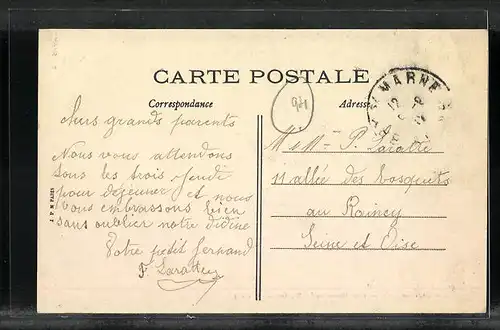 CARTE POSTALE
Correspondance
Adresse
MARNE
94
Mes grands parents
Nous vous attendons
tous les trois jeudi
pour déjeuner et nous
vous embrassons bien
sans oublier notre didine
Votre petit Fernand
F. Laratte
M et Mme P. Laratte
11 allée des bosquets
au Raincy
Seine et Oise
J P M PARIS